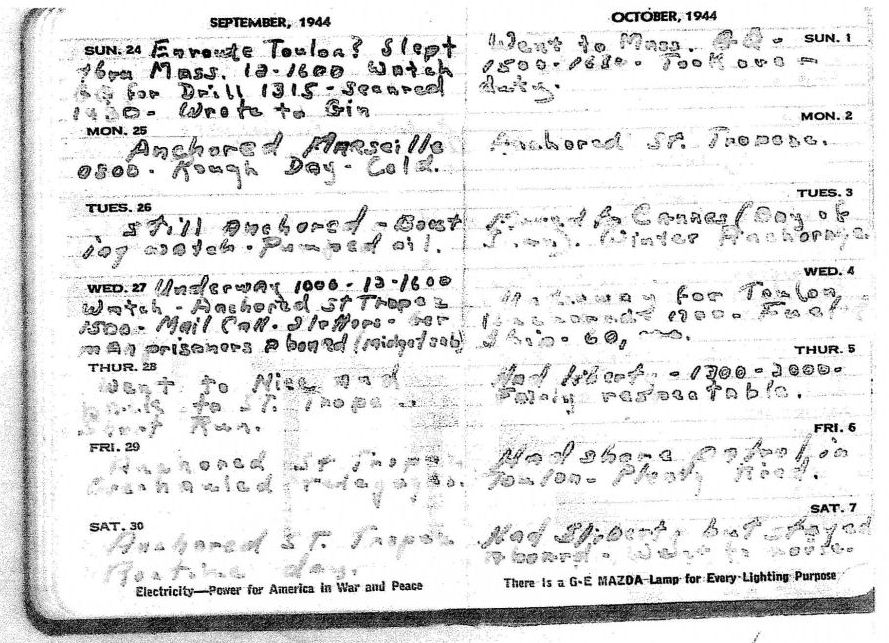 SEPTEMBER, 1944
SUN. 24 Enroute Toulon? Slept
thru Mass. 12-1600 Watch
for Drill 1315 - secured
1430 - Wrote to Gin
MON. 25
Anchored Marseille
0800. Rough Day - Cold.
TUES. 26
Still anchored - Boat
ing watch - Pumped oil.
WED. 27 Underway 1000 - 12-1600
Watch - Anchored St Tropez
1500 - Mail Call. 2 letters - Ger
man prisoners aboard (midget sub)
THUR. 28
Went to Nice and
back to St. Trope
Run.
FRI. 29
Anchored St Tropez
Overhauled gages.
SAT. 30
Anchored ST. Tropez
Routine day.
Electricity—Power for America in War and Peace
OCTOBER, 1944
SUN. 1
Went to Mass.
1500 - Took over
duty.
MON. 2
Anchored ST. Tropez.
TUES. 3
Moved to Cannes (Bay of
Winter Anchorage
WED. 4
Underway for Toulon
1700 - Fuel
Ship - 60,
THUR. 5
Had liberty - 1300-2000 -
Fairly respectable.
FRI. 6
Had shore patrol in
Toulon - Plenty tired.
SAT. 7
Had liberty but stayed
aboard - Went to
There Is a G-E MAZDA Lamp for Every Lighting Purpose